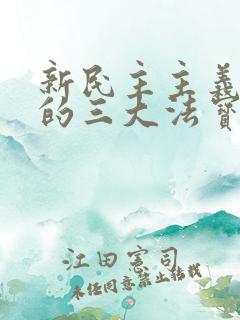 新民主主義
的三大法寶
江田憲司
未經同意禁止轉載